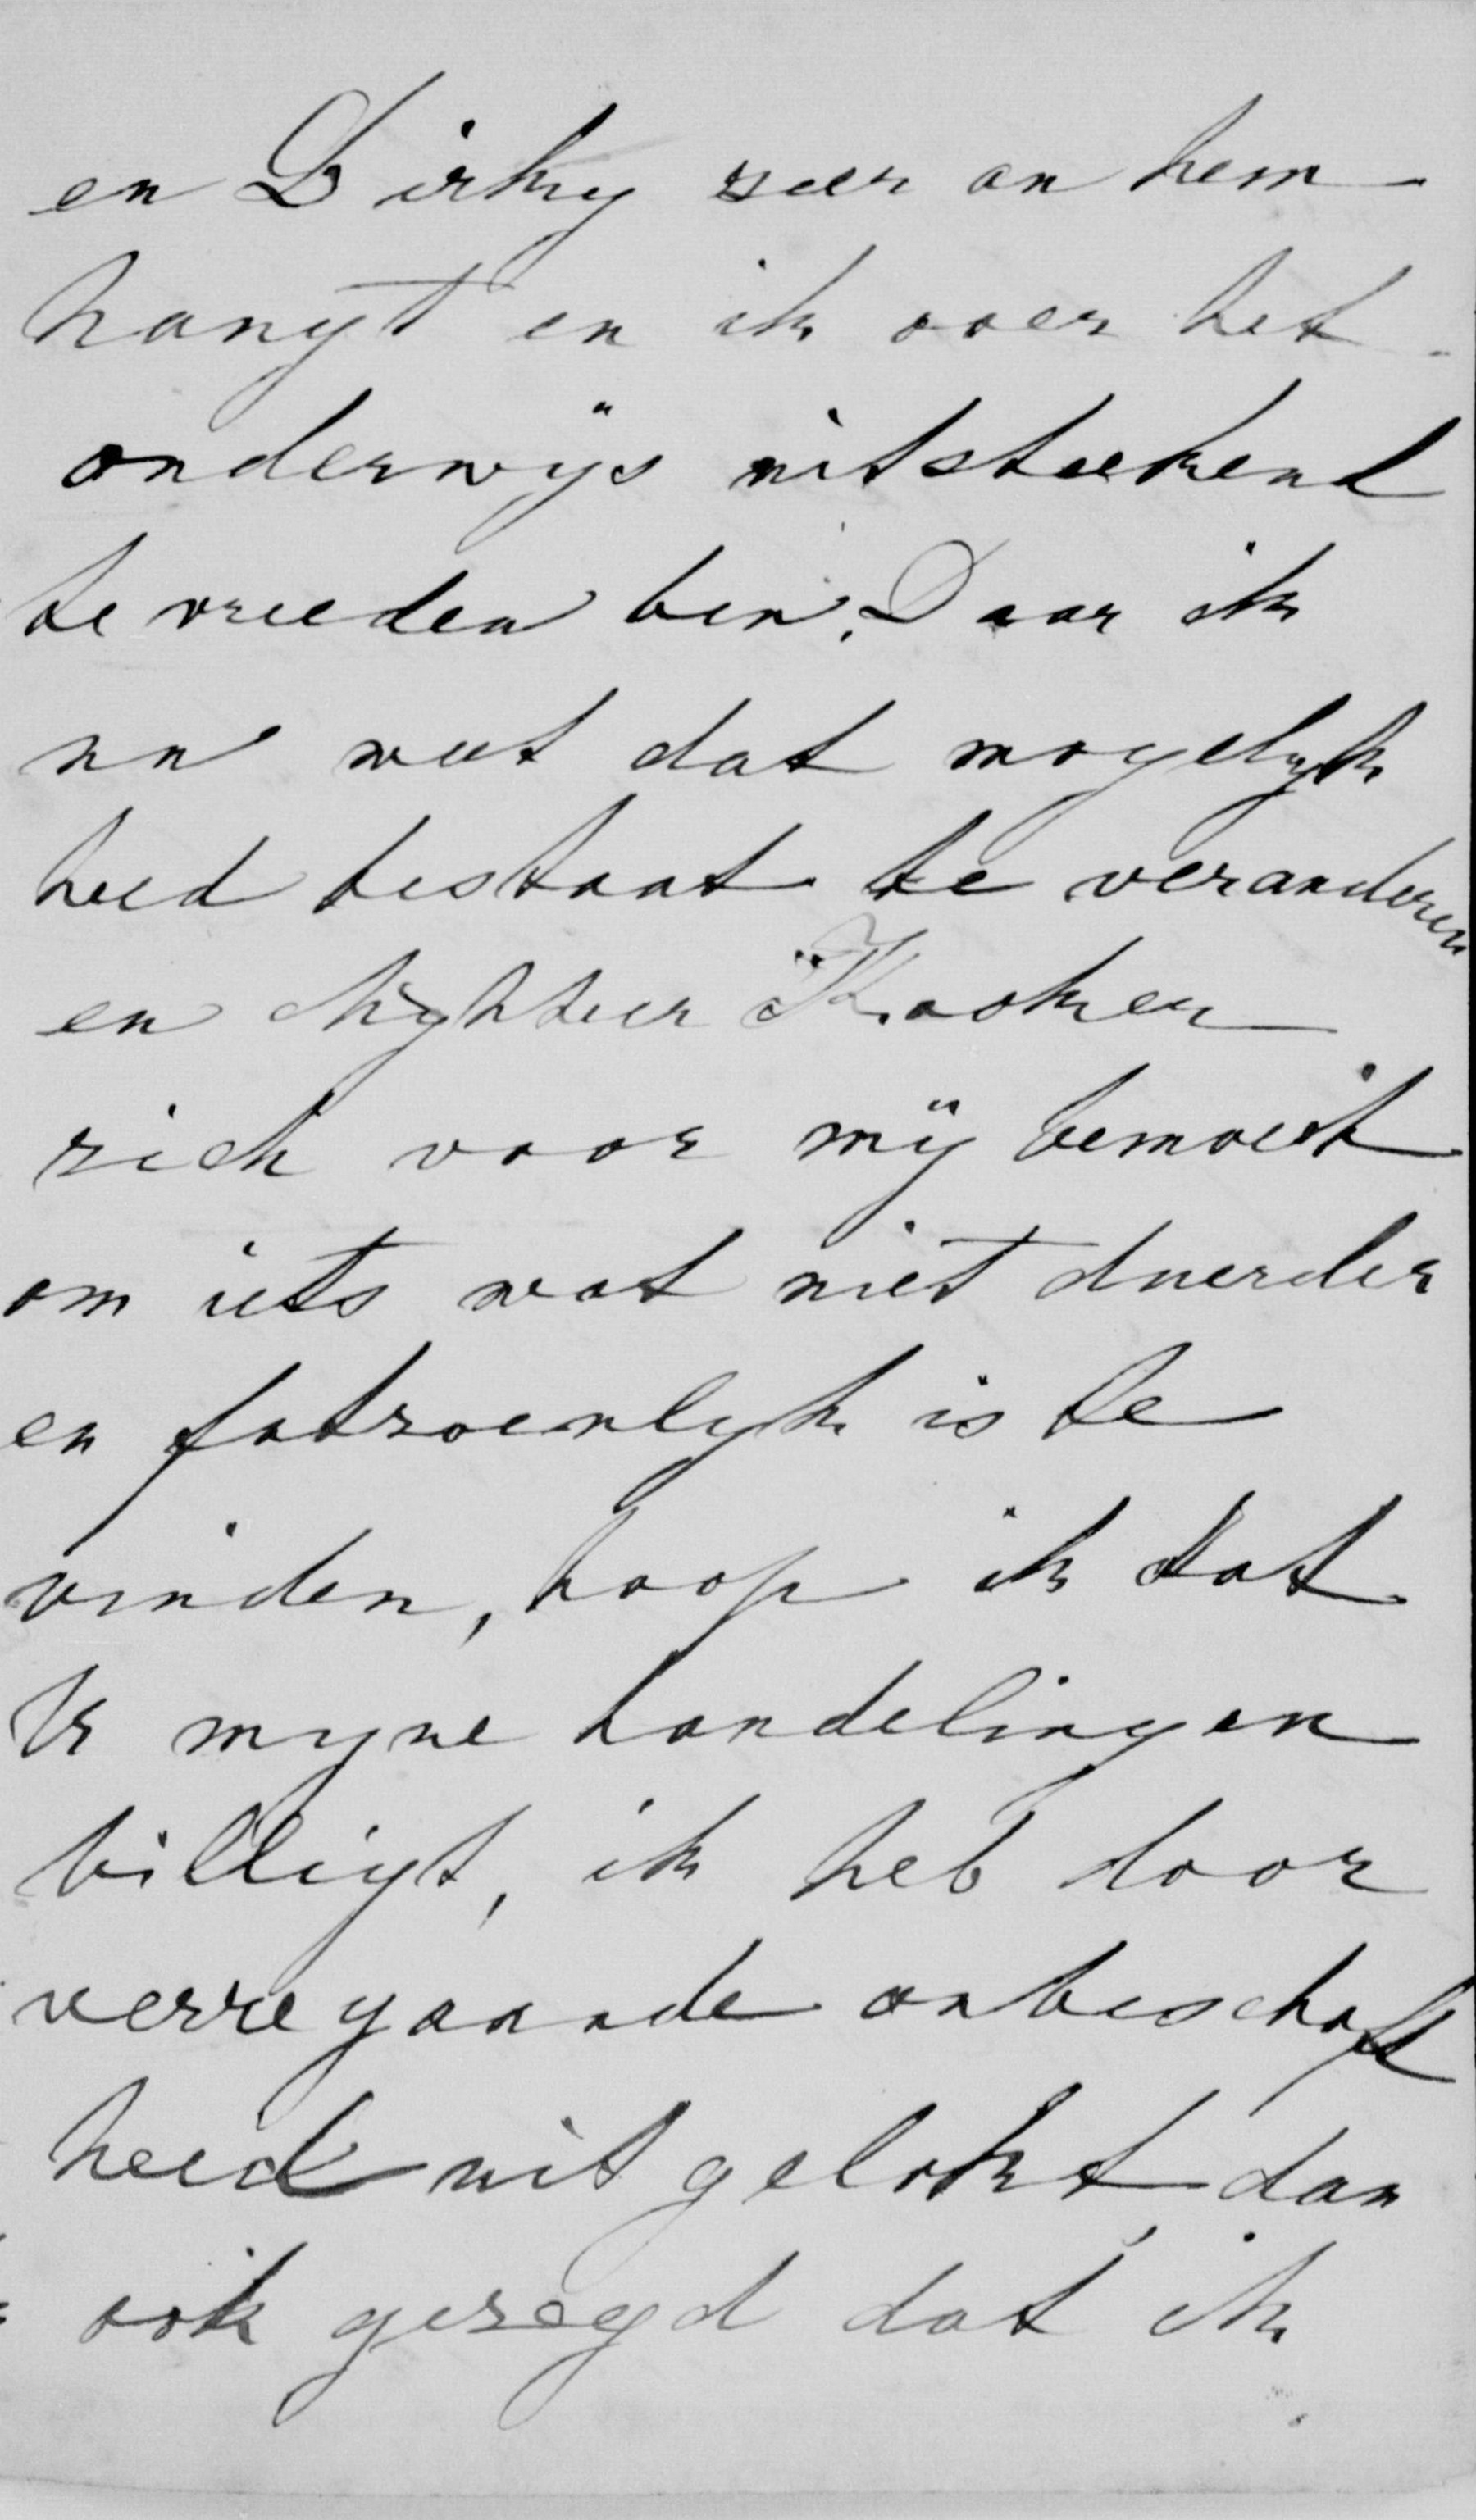 en Dirky zeer an hem
hangt en ik over het
onderwijs uitsteekend
te vreeden ben. Daar ik
nu weet dat mogelyk
heid bestaat te veranderen
en Koker
zich voor mij bemoeit
om iets wat niet duurder
en fatzoenlyk is te
vinden, hoop ik dat
U myne handelingen
billigt, ik heb door
verregaande onbeschaft
heid uit gelokt, dan
ook gezegd dat ik